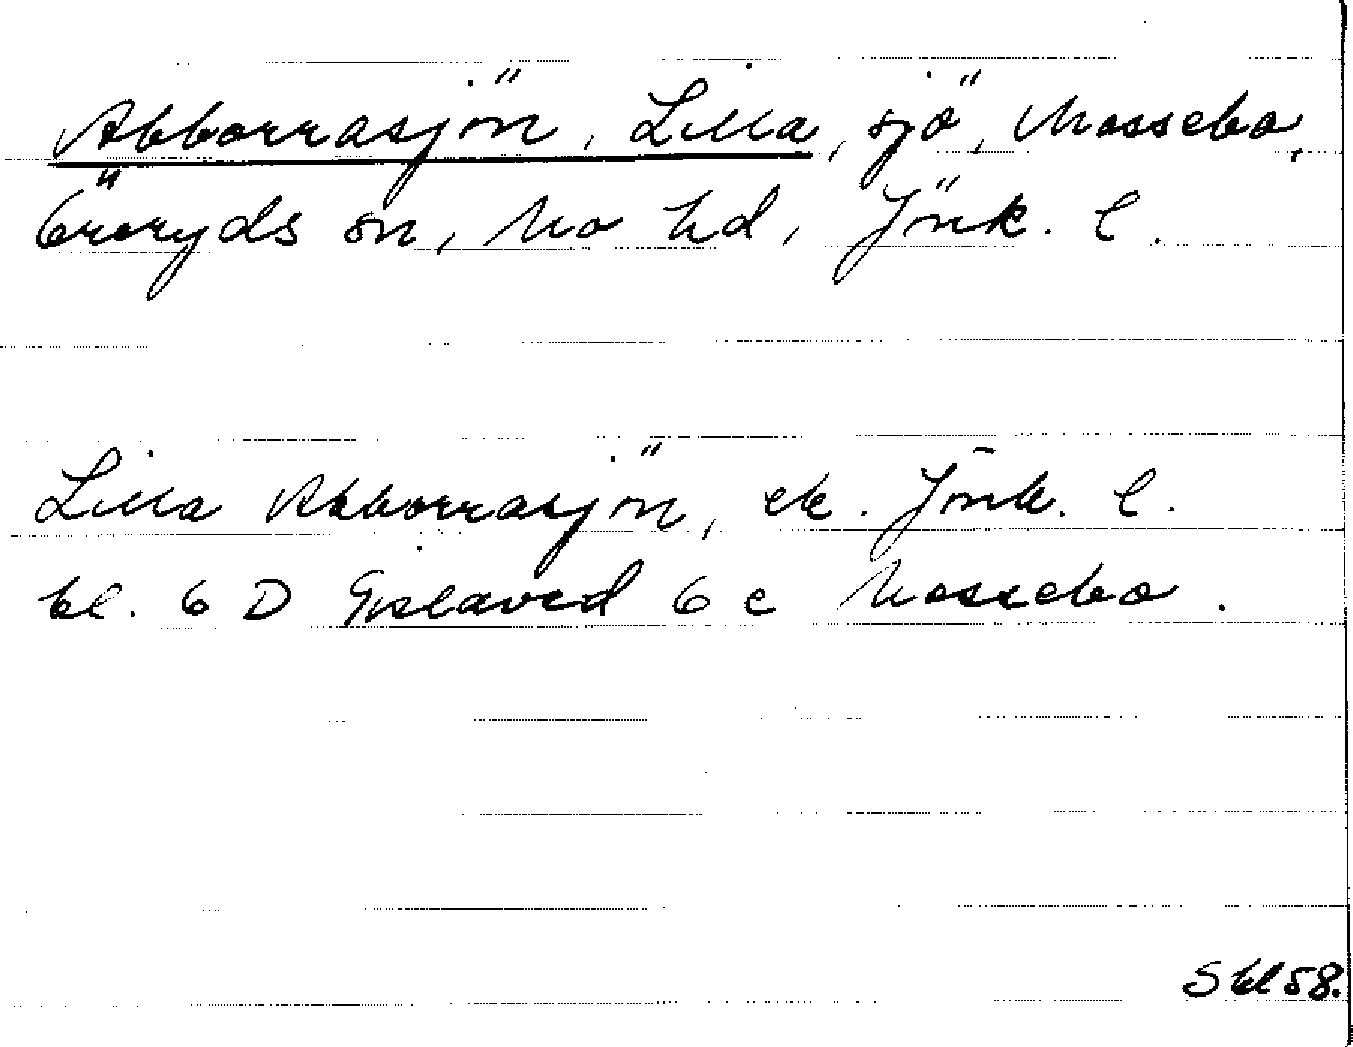 Abborrasjön, Lilla, sjö, Mossebo,
Öreryds sn, Mo hd, Jönk. l.
Lilla Abborrasjön, ek. Jönk. l.
bl. 6 D Gislaved 6 c Mossebo.
S bl 58.